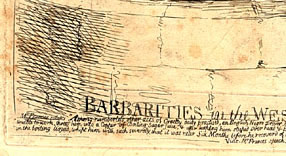 BARBARITIES in the WES
Among numberless other acts of Cruelty daily practised, an English Negro Driver
work, threw him into a Copper of Boiling Sugar juice, & after keeping him above
in the boiling liquid, whipt him with such severity, that it was near Six Months before he recovered of
Vide Mr Francis Speech